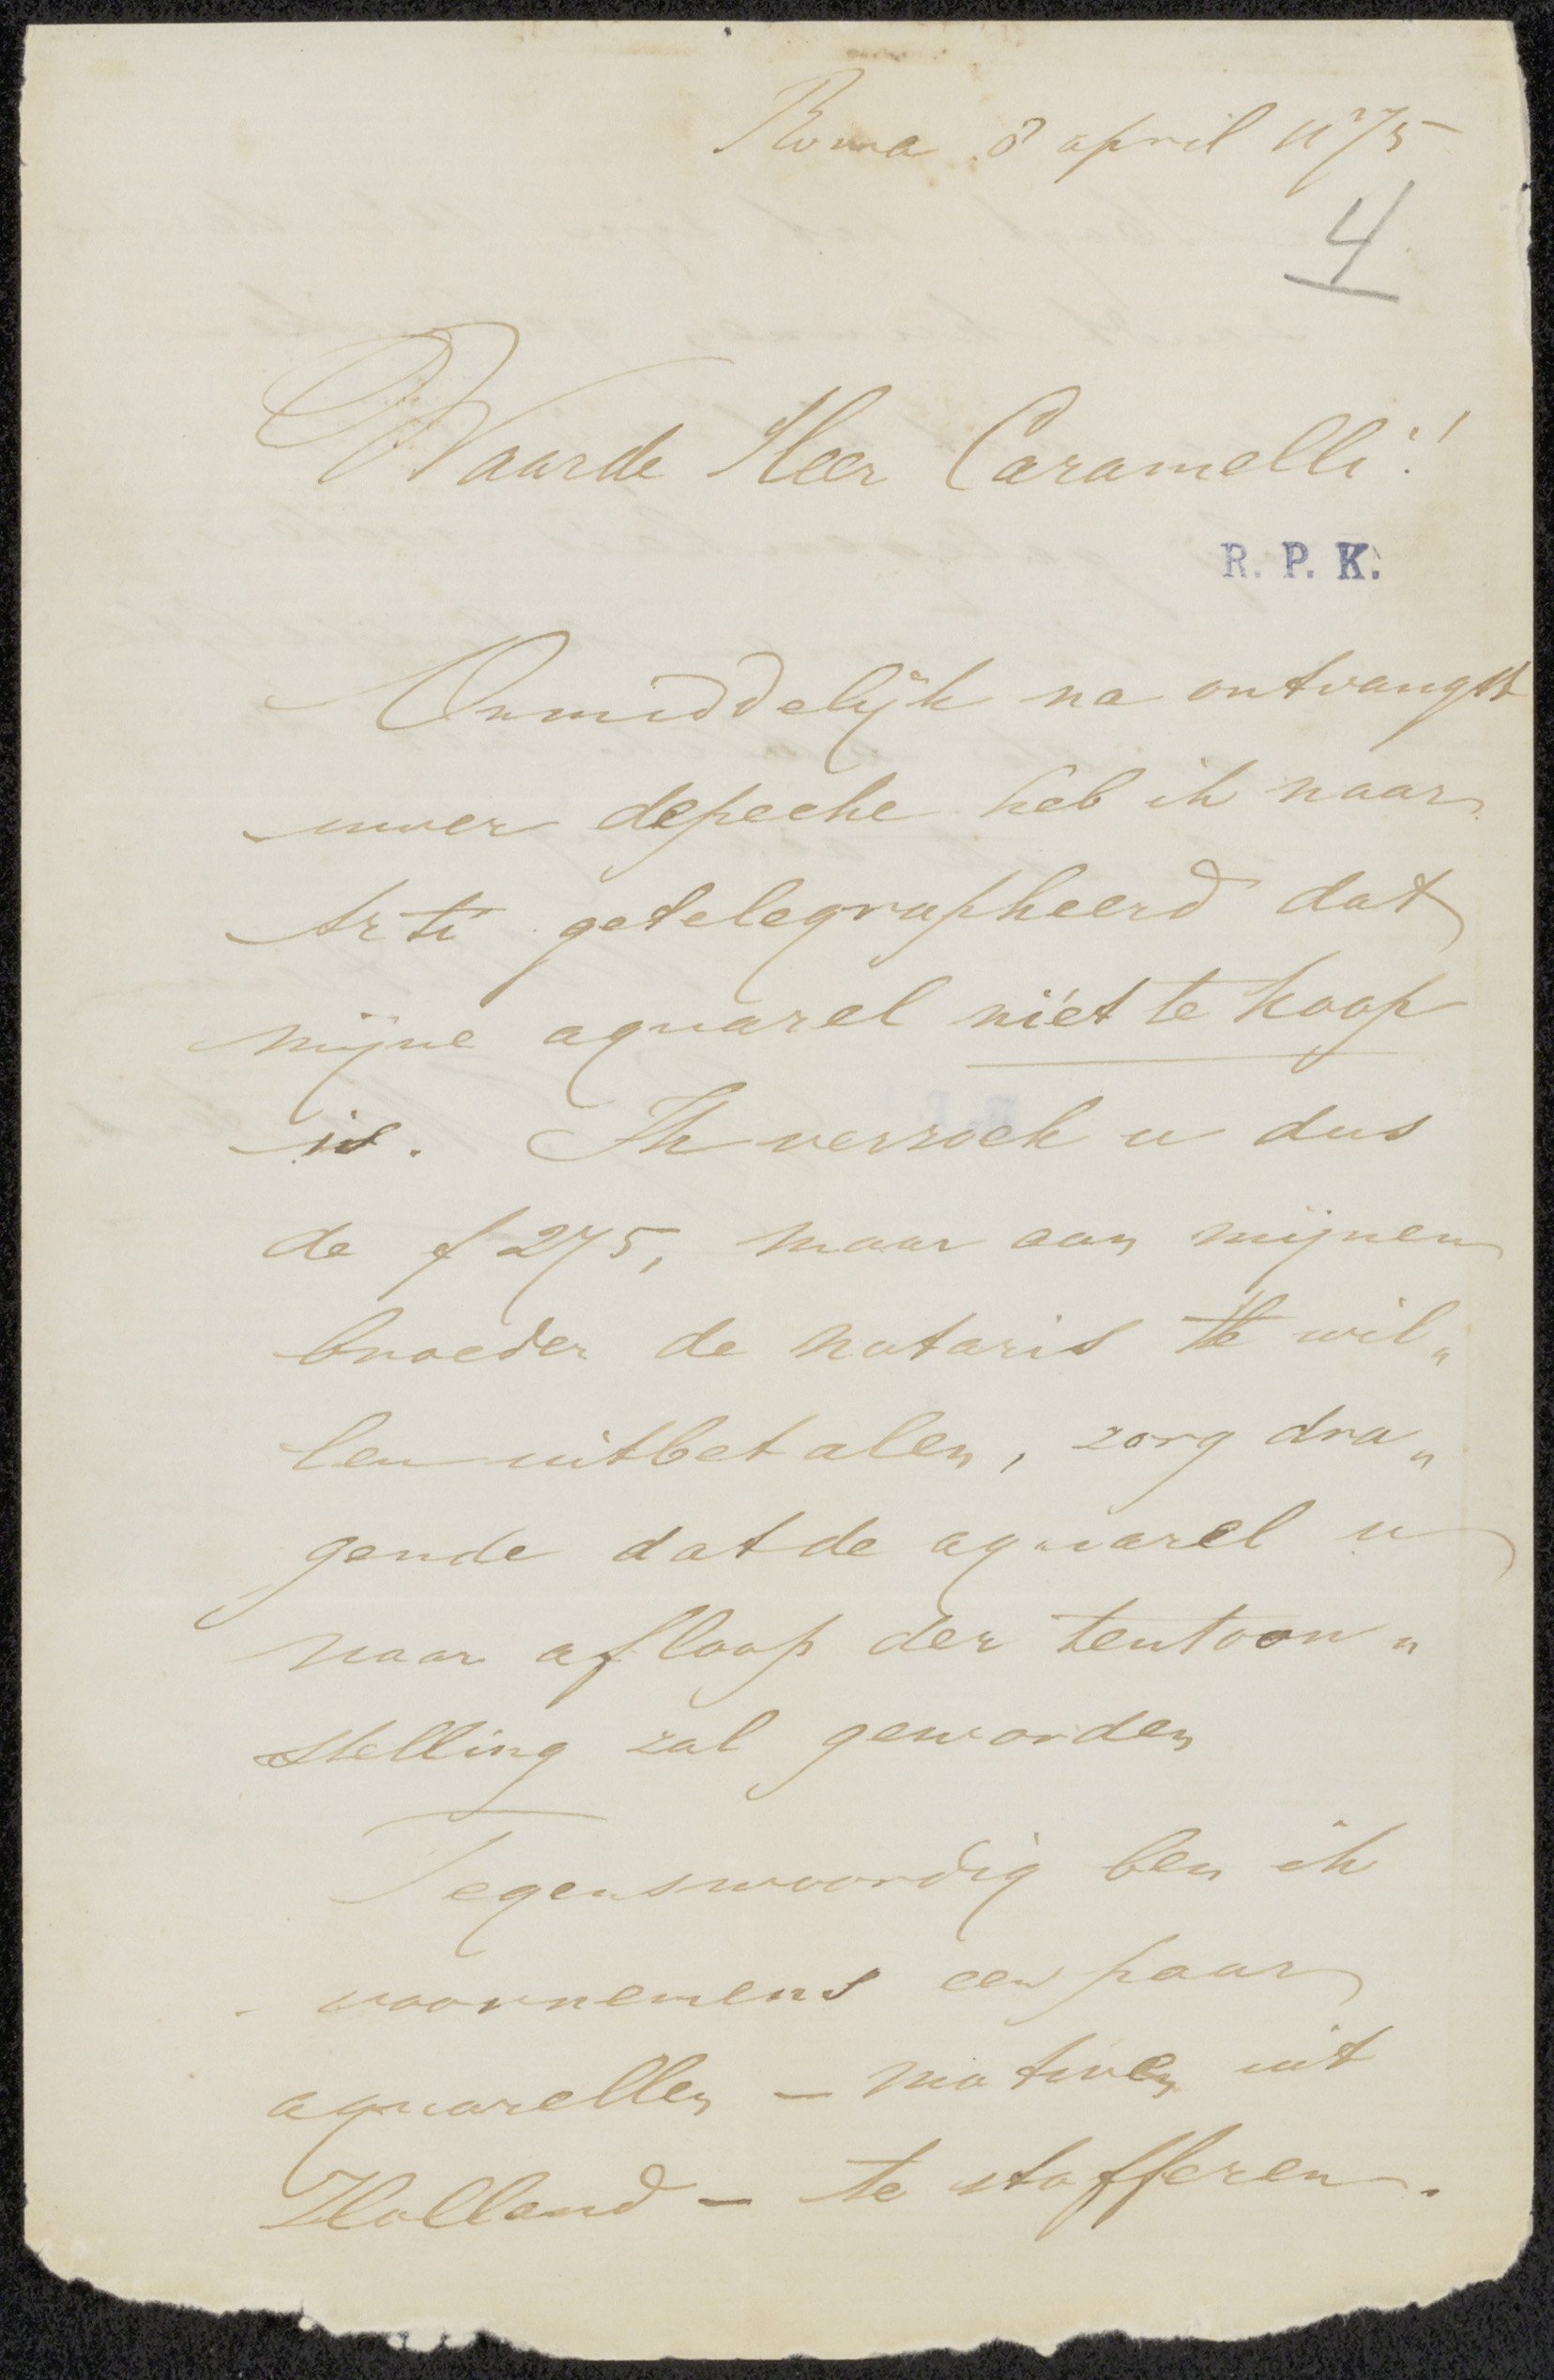 Roma 8 april 1875
4
Waarde Heer Caramelli!
R. P. K.
Onmiddelijk na ontvangst
uwer depeche heb ik naar
Arti getelegrapheerd dat
mijne aquarel niet te koop
is. Ik verzoek u dus
de f 275, maar aan mijnen
broeder de notaris te wil„
len uitbetalen, zorg dra„
gende dat de aquarel u
naar afloop der tentoon„
stelling zal geworden
Tegenswoordig ben ik
voornemens een paar
aquarellen – motiven uit
Holland – te stofferen.